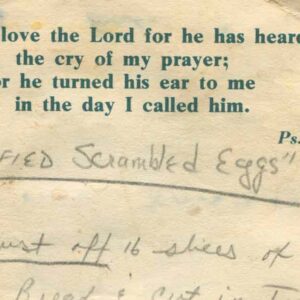 love the Lord for he has heard
the cry of my prayer;
or he turned his ear to me
in the day I called him.
Ps.
FIED Scrambled Eggs"
ust off 16 slices of
Bread & cut in